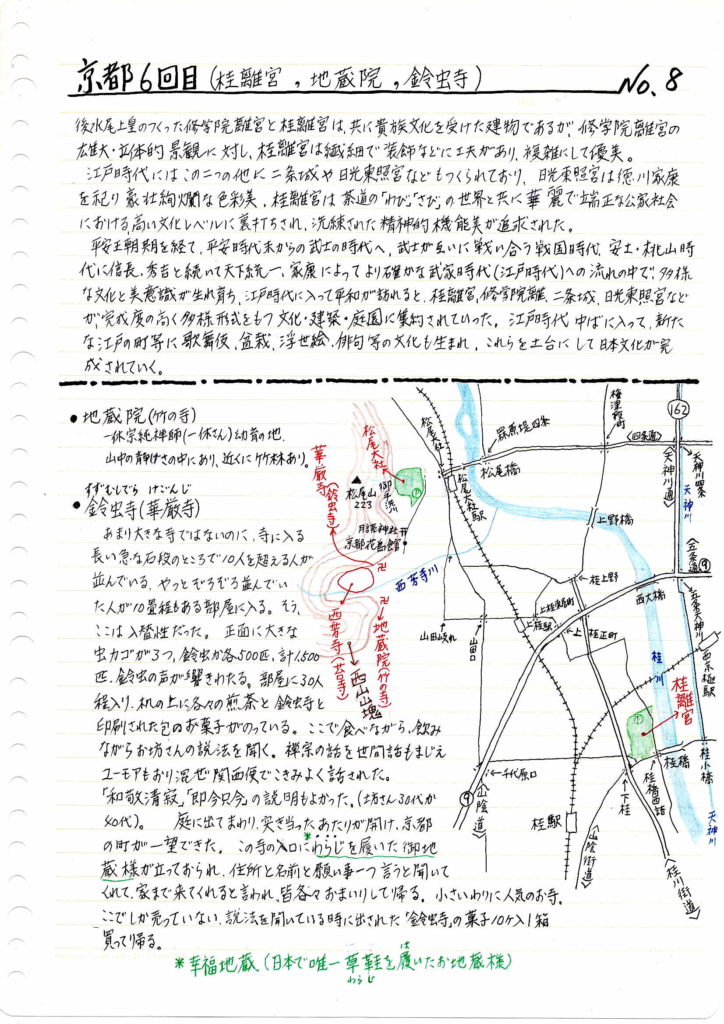 京都6回目(桂離宮,地蔵院,鈴虫寺)
No.8
後水尾上皇のつくった修学院離宮と桂離宮は、共に貴族文化を受けた建物であるが、修学院離宮の
雄大・立体的景観に対し、桂離宮は繊細で装飾などに工夫があり、複雑にして優美。
江戸時代にはこの二つの他に二条城や日光東照宮などもつくられており、日光東照宮は徳川家康
を祀り豪壮絢爛な色彩美、桂離宮は茶道の「わび」「さび」の世界と共に華麗で端正な公家社会
における高い文化レベルに裏打ちされ、洗練された精神的機能美が追求された。
平安王朝期を経て、平安時代末からの武士の時代へ、武士が互いに戦い合う戦国時代、安土・桃山時
代に信長、秀吉と続いて天下統一、家康によってより確かな武家時代(江戸時代)への流れの中で、多様
な文化と美意識が生れ育ち、江戸時代に入って平和が訪れると、桂離宮、修学院離、二条城、日光東照宮など
が、完成度の高く多様形式をもつ文化・建築・庭園に集約されていった。江戸時代中ばに入って、新た
な江戸の町等に歌舞伎、盆栽、浮世絵、俳句等の文化も生まれ、これらを土台にして日本文化が完
成されていく。
●地蔵院(竹の寺)
一休宗純禅師(一休さん)幼育の地.
山中の静けさの中にあり、近くに竹林あり。
すずむしでら けごんじ
●鈴虫寺(華厳寺)
あまり大きな寺ではないのに、寺に入る
長い急な石段のところで10人を超える人が
並んでいる。やっとぞろぞろ並んでい
た人が10畳程もある部屋に入る。そう、
ここは入替性だった。正面に大きな
虫カゴが3つ、鈴虫が各500匹、計1,500
匹、鈴虫の声が響きわたる。部屋に30人
程入り、机の上に各々の煎茶と鈴虫寺と
印刷された包のお菓子がのっている。ここで食べながら、飲み
ながらお坊さんの説法を聞く。禅宗の話を世間話もまじえ
ユーモアもあり混ぜ関西便でこきみよく話された。
「和敬清寂」「即今只今」の説明もよかった。(坊さん30代か
40代)。庭に出てまわり、突き当ったあたりが開け、京都
の町が一望できた。この寺の入口に*わらじを履いた御地
蔵様が立っておられ、住所と名前と願い事一つ言うと聞いて
くれて、家まで来てくれると言われ、皆各々おまいりして帰る。小さいわりに人気のお寺。
ここでしか売っていない、説法を聞いている時に出された「鈴虫寺」の菓子10ケ入1箱
買って帰る。
*幸福地蔵(日本で唯一草鞋を履いたお地蔵様)
は
わらじ
華厳寺(鈴虫寺)
松尾大社
松尾山
223
御手洗川
月読神社
京都花鳥館
卍
西芳寺川
西芳寺(苔寺)
卍
地蔵院(竹の寺)
西山山塊
松尾大社
松尾大社駅
罧原堤四条
松尾橋
梅津段町
<四条通>
162
<天神川通>
天神川四条
天神川
上野橋
桂上野
<五条通>
9
西大橋
五条天神川
上桂前田町
上桂駅
上桂正町
山田岐れ
山田口
西京極駅
桂川
桂離宮
桂小橋
桂橋
桂橋西詰
下桂
天神川
千代原口
9
<山陰道>
桂駅
<山陰街道>
<桂川街道>